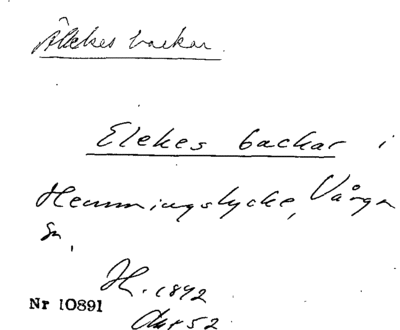 Älekes backar.
Elekes backar i
Hemmingslycke, Vånga
sn,
H. 1892
Nr 10891